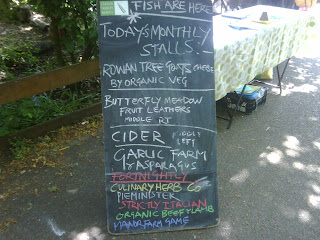 FISH ARE HERE
TODAY'S MONTHLY
STALLS:
ROWAN TREE GOATS CHEESE
BY ORGANIC VEG
BUTTERFLY MEADOW
FRUIT LEATHERS
MIDDLE RT
CIDER
LEFT
GARLIC FARM
ASPARAGUS
FORTNIGHTLY
CULINARY HERB CO
PIEMINISTER
STRICTLY ITALIAN
ORGANIC BEEF LAMB
MANOR FARM GAME